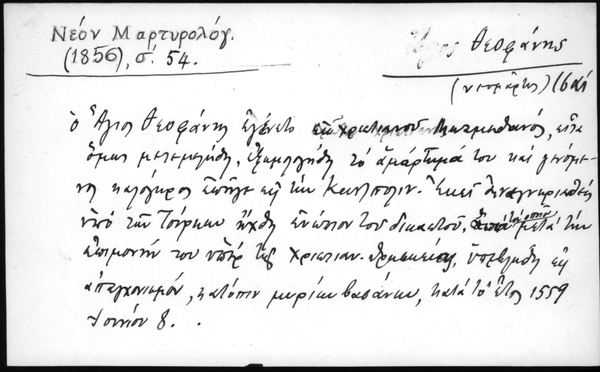 Νέον Μαρτυρολόγ.
(1856), σ. 54.
Ἅγιος Θεοφάνης
(νεομάρτυς) (6αι
ὁ Ἅγιος Θεοφάνης ἐγένετο ἐκ χριστιανοῦ Μωαμεθανός, εἶτα
ὅμως μετεμελήθη, ἐξωμολογήθη τὸ ἁμάρτημά του καὶ γενόμε-
νος καλόγηρος ἐπῆγε εἰς τὴν Κων/πολιν. Ἐκεῖ ἀναγνωρισθεὶς
ὑπὸ τῶν Τούρκων ἤχθη ἐνώπιον τοῦ δικαστοῦ, μετὰ τὴν
ἐπιμονήν του ὑπὲρ τῆς χριστιαν. θρησκείας, ὑπεβλήθη εἰς
ἀπαγχονισμόν, κατόπιν μυρίων βασάνων, κατὰ τὸ ἔτος 1559
Ἰουνίου 8.